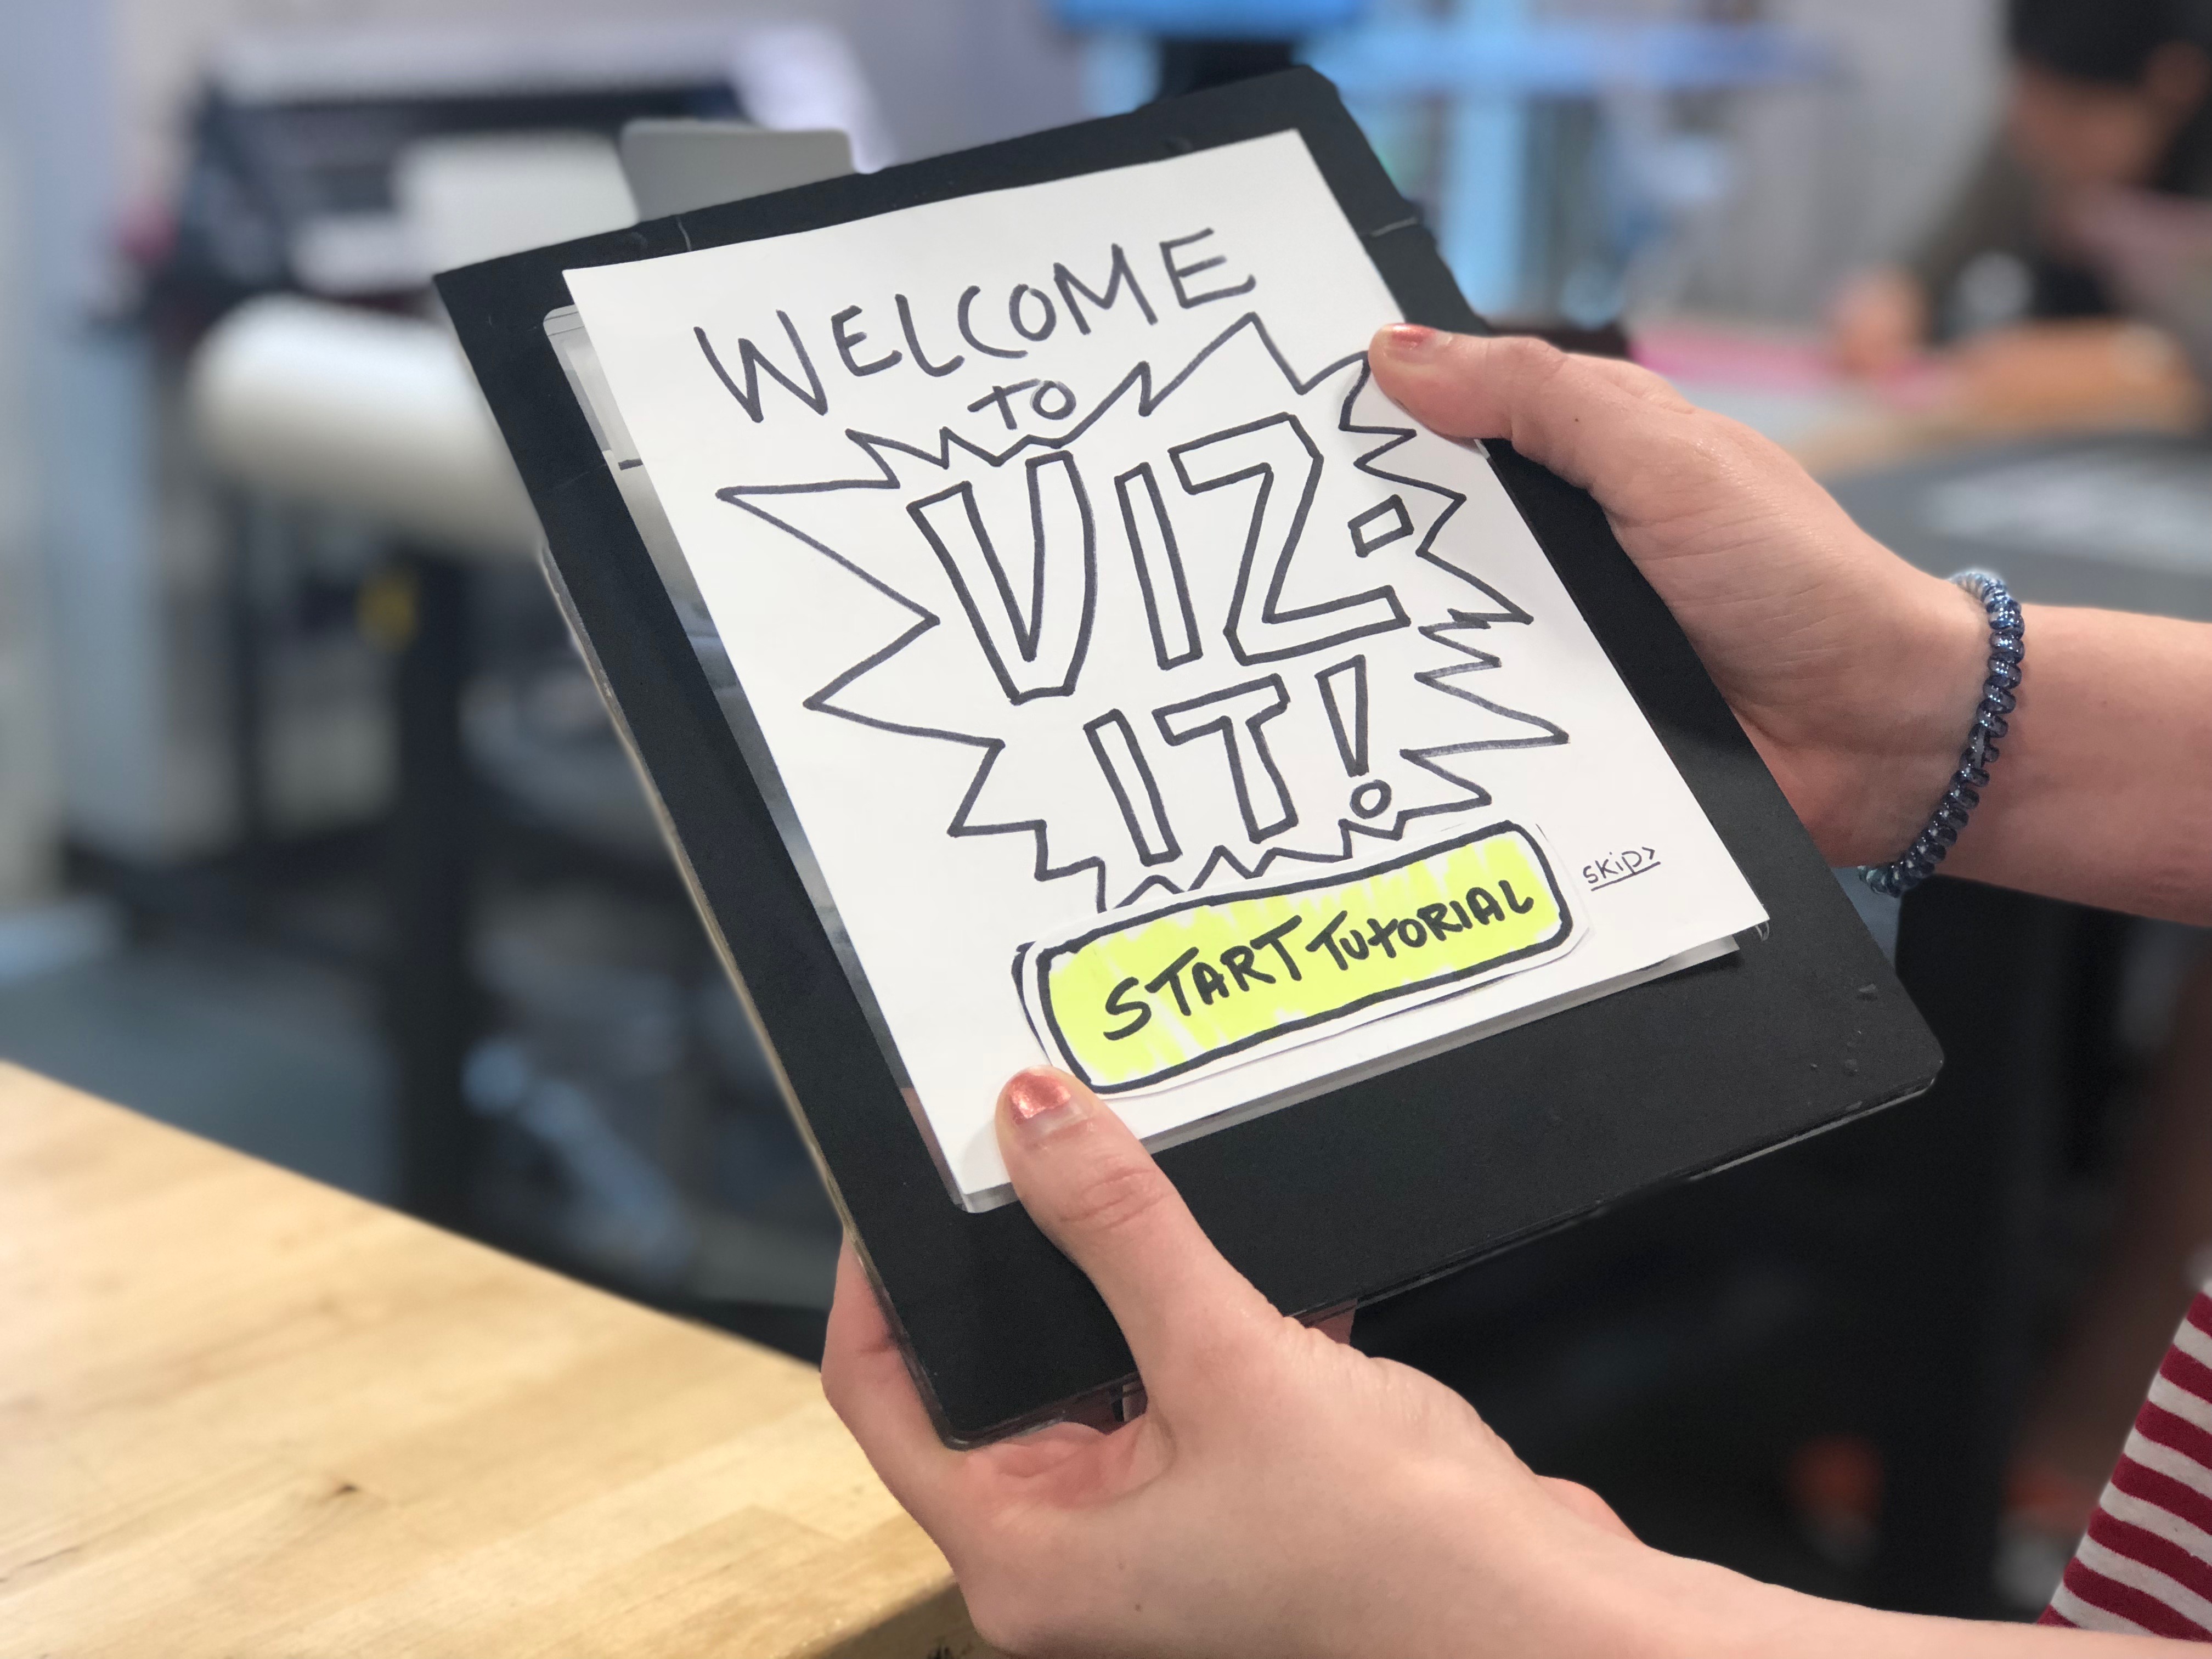 WELCOME
TO
VIZ-
IT!
START TUTORIAL
skip>